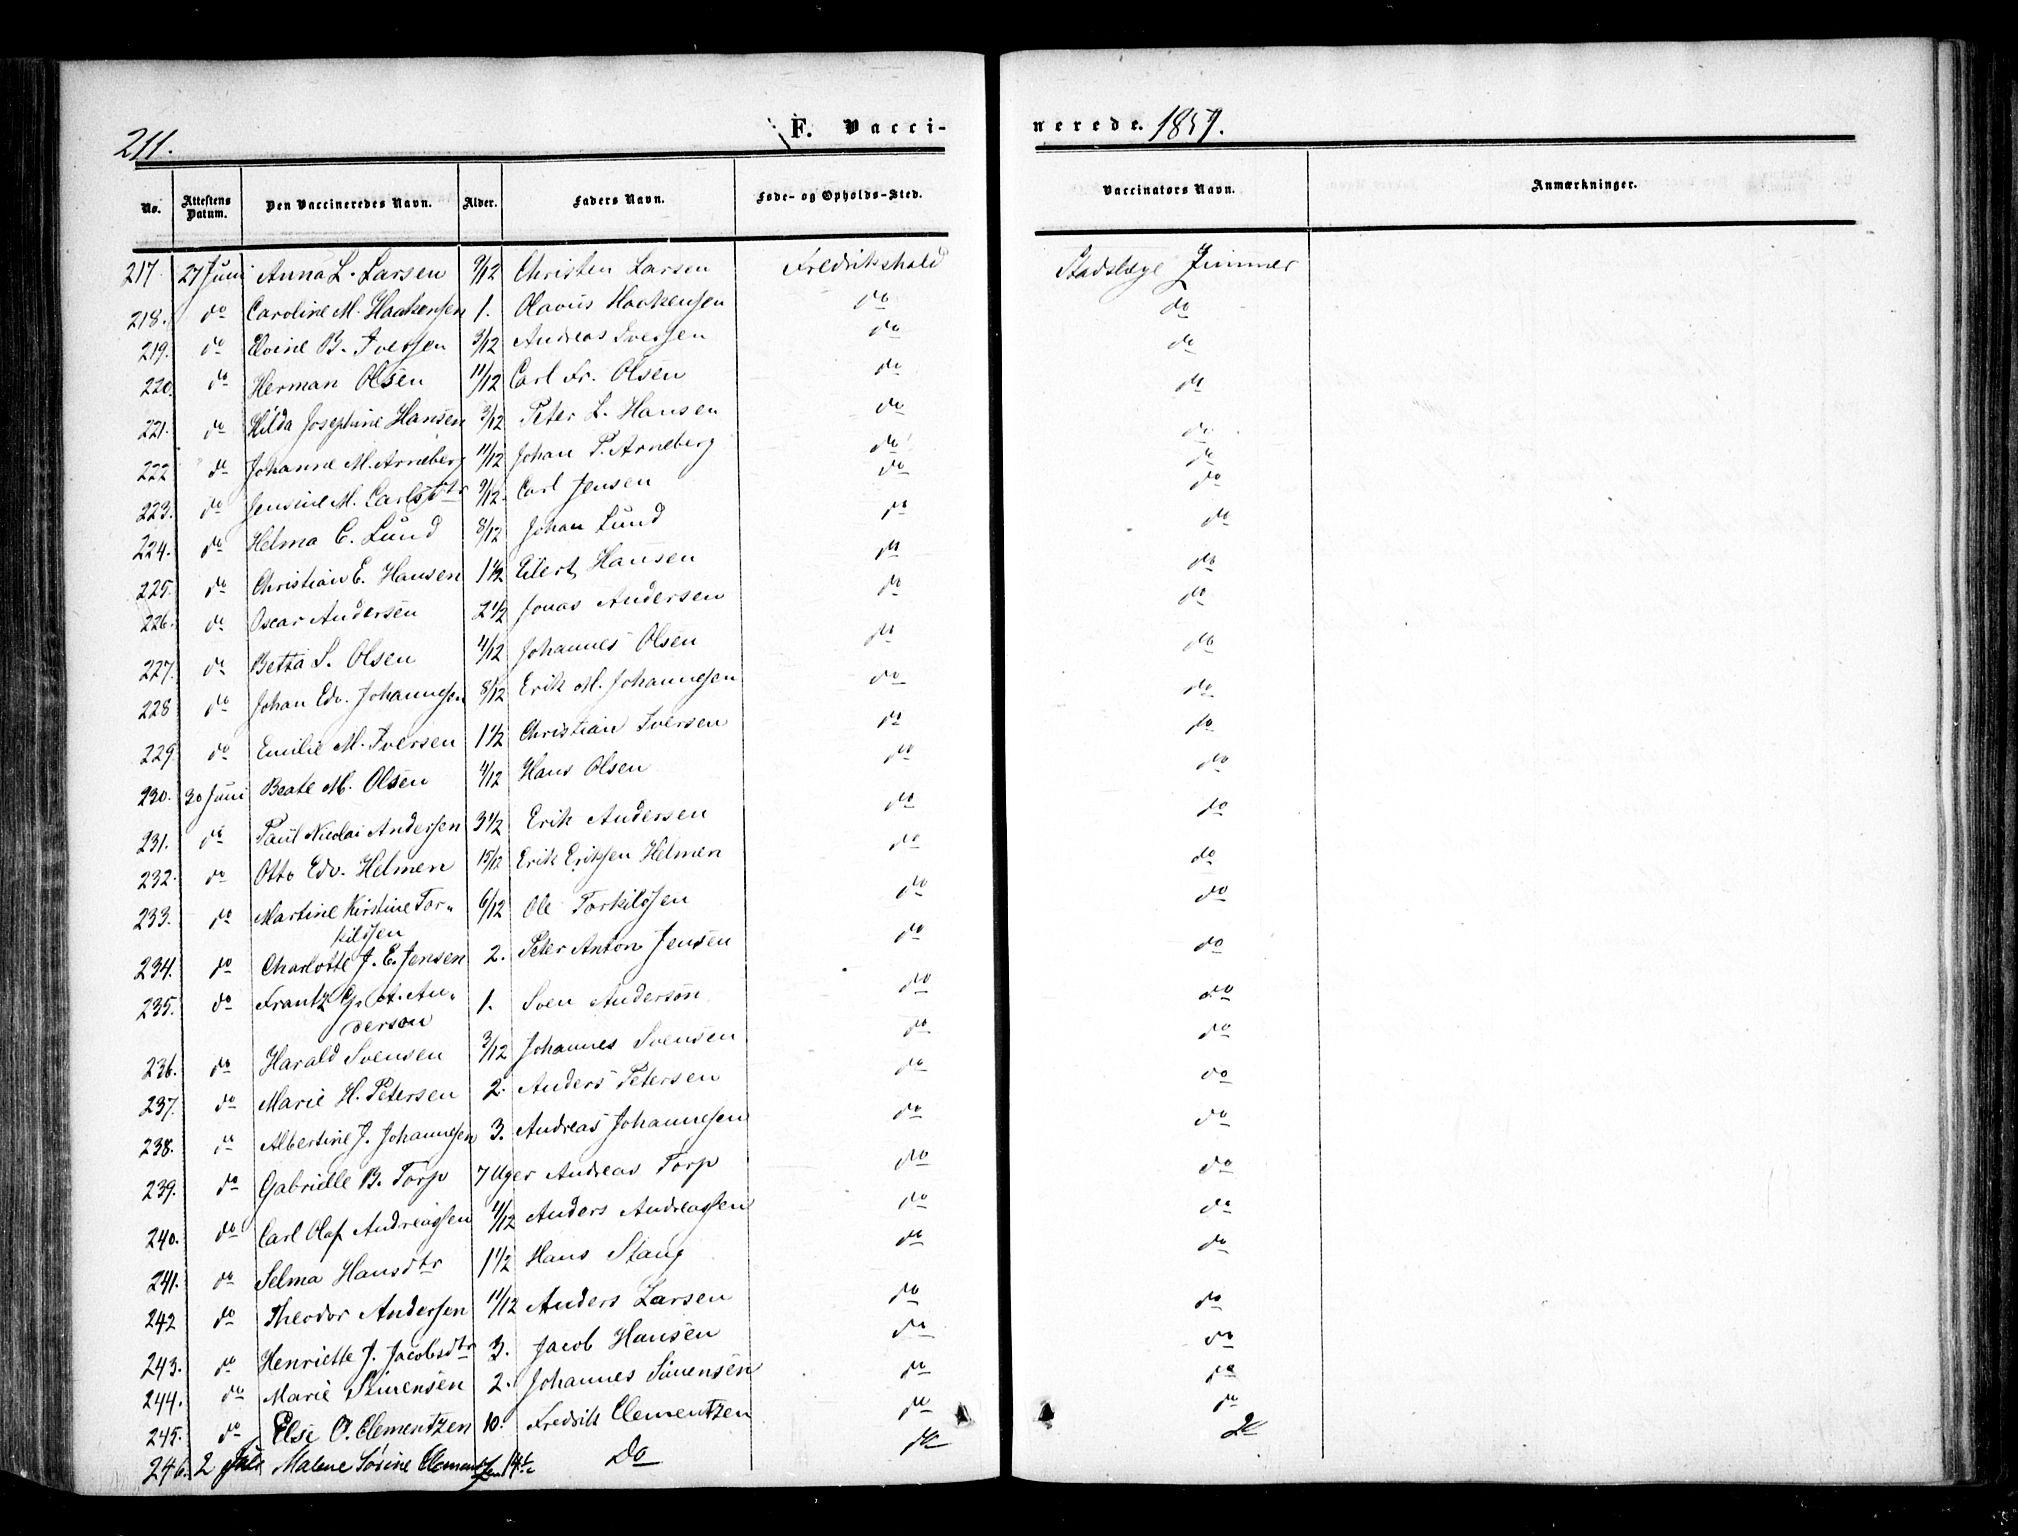 211.
F. Vacci-
nerede. 1857.
No. Attestens Datum. Den Vaccineredes Navn. Alder. Faders Navn. Føde- og Opholds-Sted. Vaccinators Navn. Anmærkninger.
217. 27 Juni Anna L. Larsen 9/12 Christen Larsen Fredrikshald Stadslæge Zimmer
218. do Caroline M. Haakensen 1. Olavus Haakensen do do
219. do B. Iversen 3/12 Andreas Iversen do do
220. do Herman Olsen 11/12 Carl Fr. Olsen do do
221. do Hilda Josephine Hansen 3/12 Peter L. Hansen do do
222 do Johanne M. Arneberg 11/12 Johan P. Arneberg do do
223. do Jensine M. Carlsdtr 9/12. Carl Jensen do do
224. do Helma C. Lund 8/12 Johan Lund do do
225. do Christian E. Hansen 1 1/2 Eilert Hansen do do
226. do Oscar Andersen 2 1/2 Jonas Andersen do do
227. do Betza S. Olsen 4/12 Johannes Olsen do do
228 do Johan Edv. Johannesen 8/12 Erik M. Johannesen do do
229. do Emilie M. Iversen 1 1/2 Christian Iversen do do
230. 30 Juni Beate M. Olsen 4/12 Hans Olsen do do
231. do Paul Nicolai Andersen 3 1/2 Erik Andersen do do
232. do Otto Edv. Helmen 15/12 Erik Eriksen Helmen do do
233. do Martine Kirstine Tor- 6/12 Ole Torkildsen do do
kildsen
234. do Charlotte J. E. Jensen 2. Peter Anton Jensen do do
235. do Frantz G. A. An- 1. Sven Anderson do do
derson
236. do Harald Svensen 3/12 Johannes Svensen do do
237. do Marie H. Petersen 2. Anders Petersen do do
238. do Albertine J. Johannesen 3. Andreas Johannesen do do
239. do Gabrielle B. Torp 7 Uger Andreas Torp do do
240. do Carl Olaf Andreassen 4/12 Anders Andreassen do do
241. do Selma Hansdtr 1 1/2 Hans Stang do do
242 do Theodor Andersen 11/12 Anders Larsen do do
243. do Henriette J. Jacobsdtr 3. Jacob Hansen do do
244. do Marie Simensen 2. Johannes Simensen do do
245. do Else O. Clementzen 10. Fredrik Clementzen do do
246. 2 Juli Malene Sørine Clementzen do do do